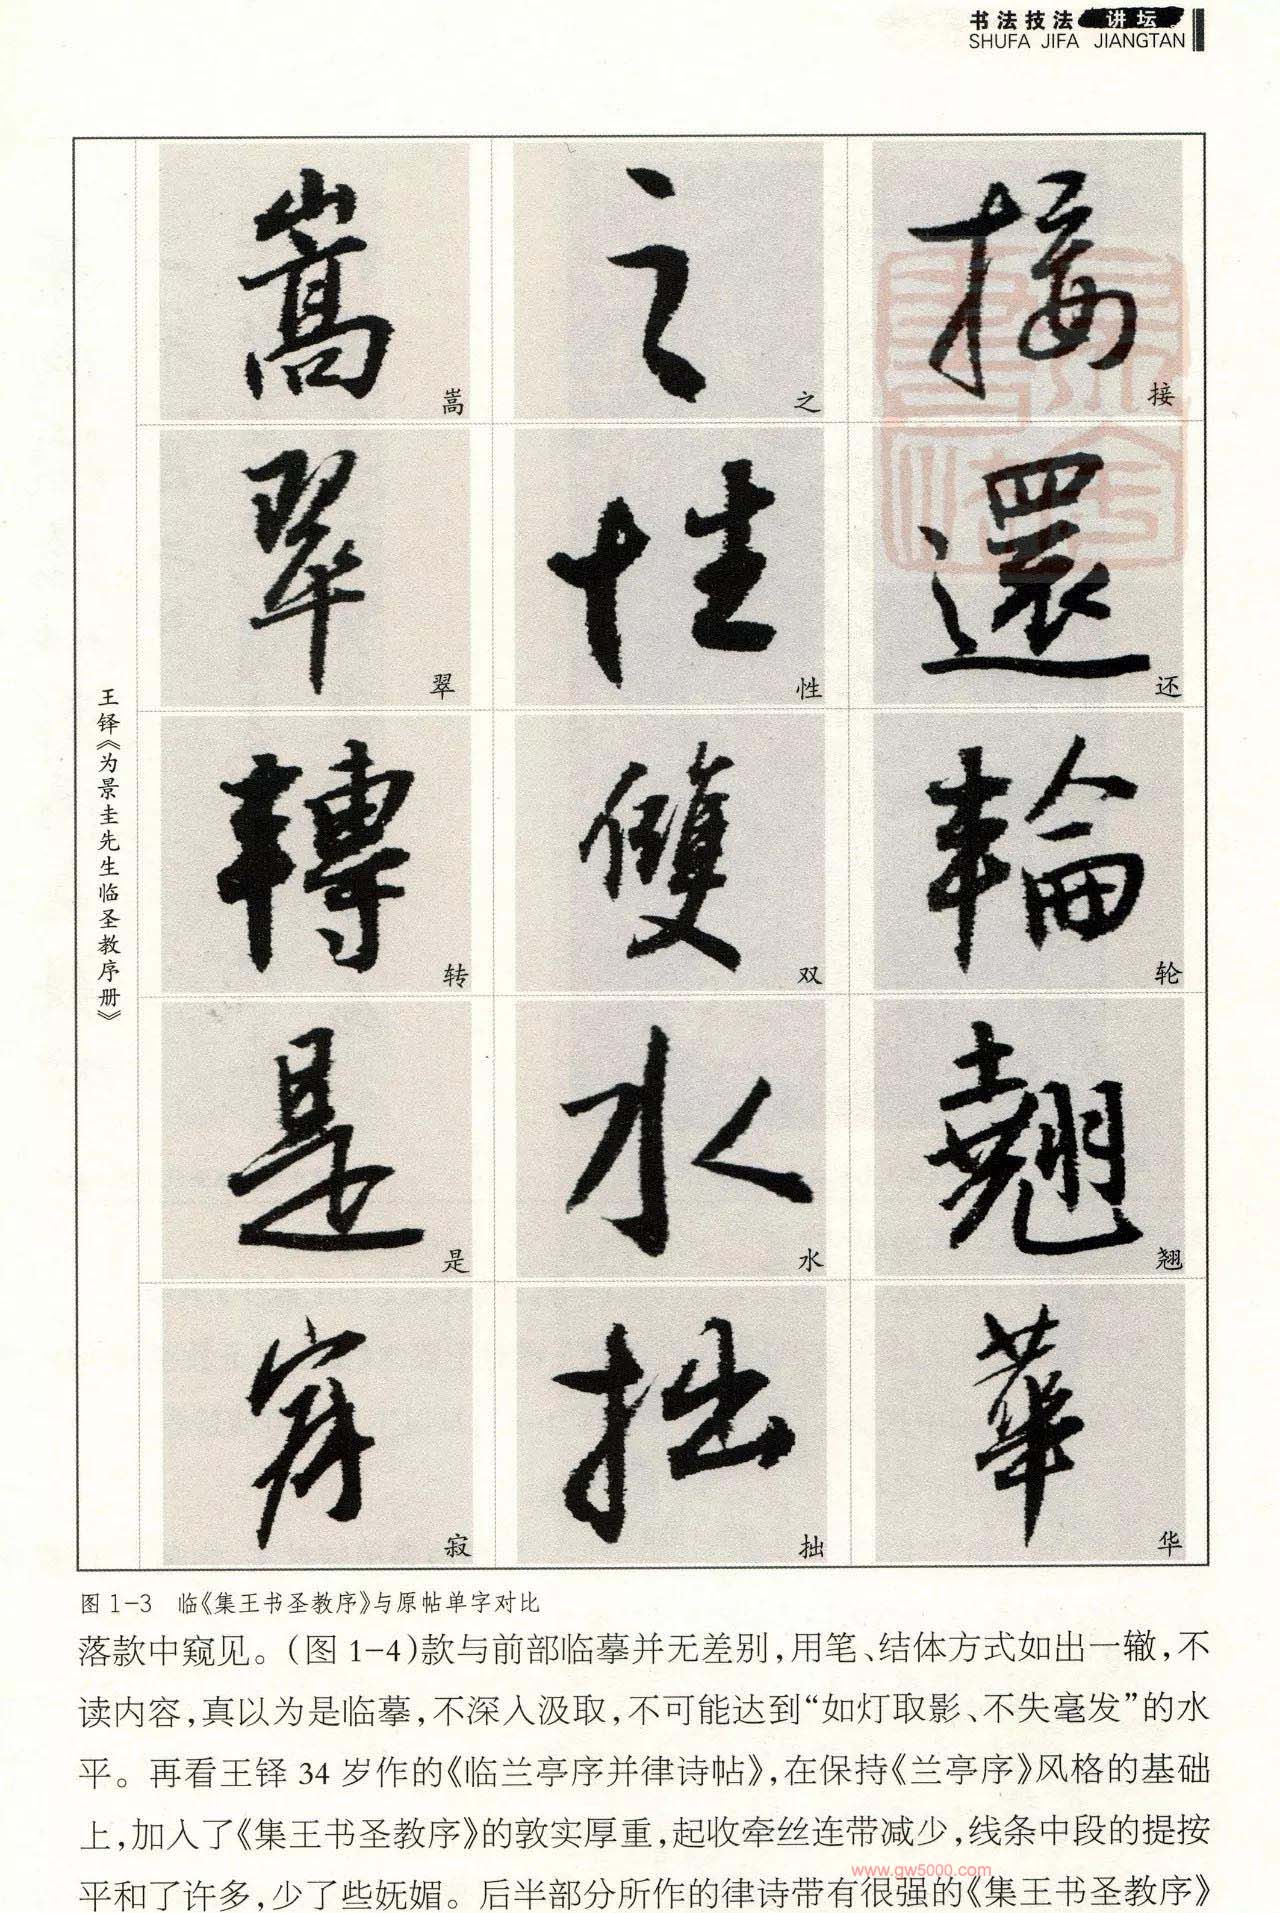 书法技法 讲坛
SHUFA JIFA JIANGTAN
嵩 嵩 之 之 接 接
翠 翠 性 性 還 还
轉 转 雙 双 輪 轮
是 是 水 水 翹 翘
寂 寂 拙 拙 華 华
王铎《为景圭先生临圣教序册》
图 1-3 临《集王书圣教序》与原帖单字对比
落款中窥见。(图 1-4)款与前部临摹并无差别,用笔、结体方式如出一辙,不
读内容,真以为是临摹,不深入汲取,不可能达到“如灯取影、不失毫发”的水
平。再看王铎 34 岁作的《临兰亭序并律诗帖》,在保持《兰亭序》风格的基础
上,加入了《集王书圣教序》的敦实厚重,起收牵丝连带减少,线条中段的提按
平和了许多,少了些妩媚。后半部分所作的律诗带有很强的《集王书圣教序》
www.gw5000.com